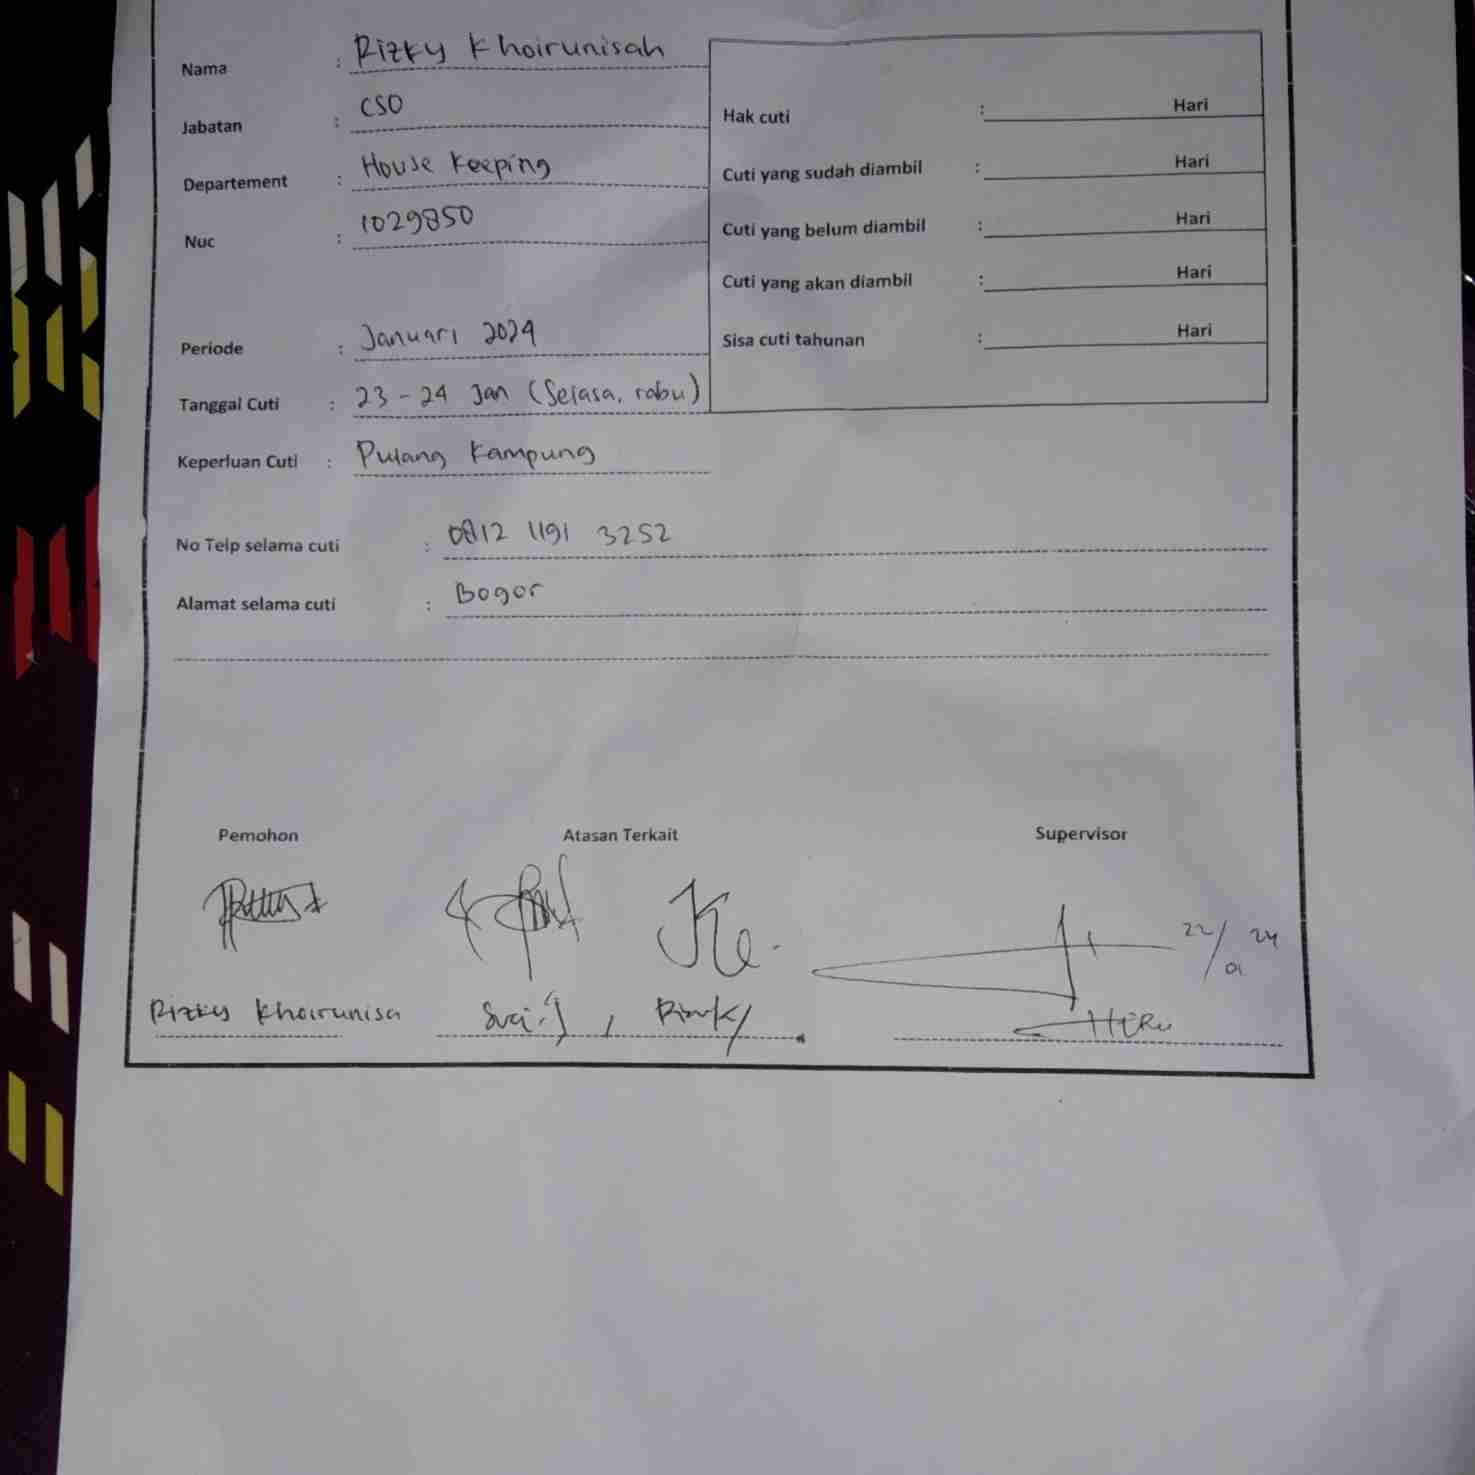 Nama : Rizky Khoirunisah
Jabatan : CSO
Departement : House Keeping
Nuc : 1029850
Hak cuti : Hari
Cuti yang sudah diambil : Hari
Cuti yang belum diambil : Hari
Cuti yang akan diambil : Hari
Sisa cuti tahunan : Hari
Periode : Januari 2024
Tanggal Cuti : 23 - 24 Jan (Selasa, rabu)
Keperluan Cuti : Pulang Kampung
No Telp selama cuti : 0812 1191 3252
Alamat selama cuti : Bogor
Pemohon Atasan Terkait Supervisor
22/01 24
Rizky Khoirunisa HERU